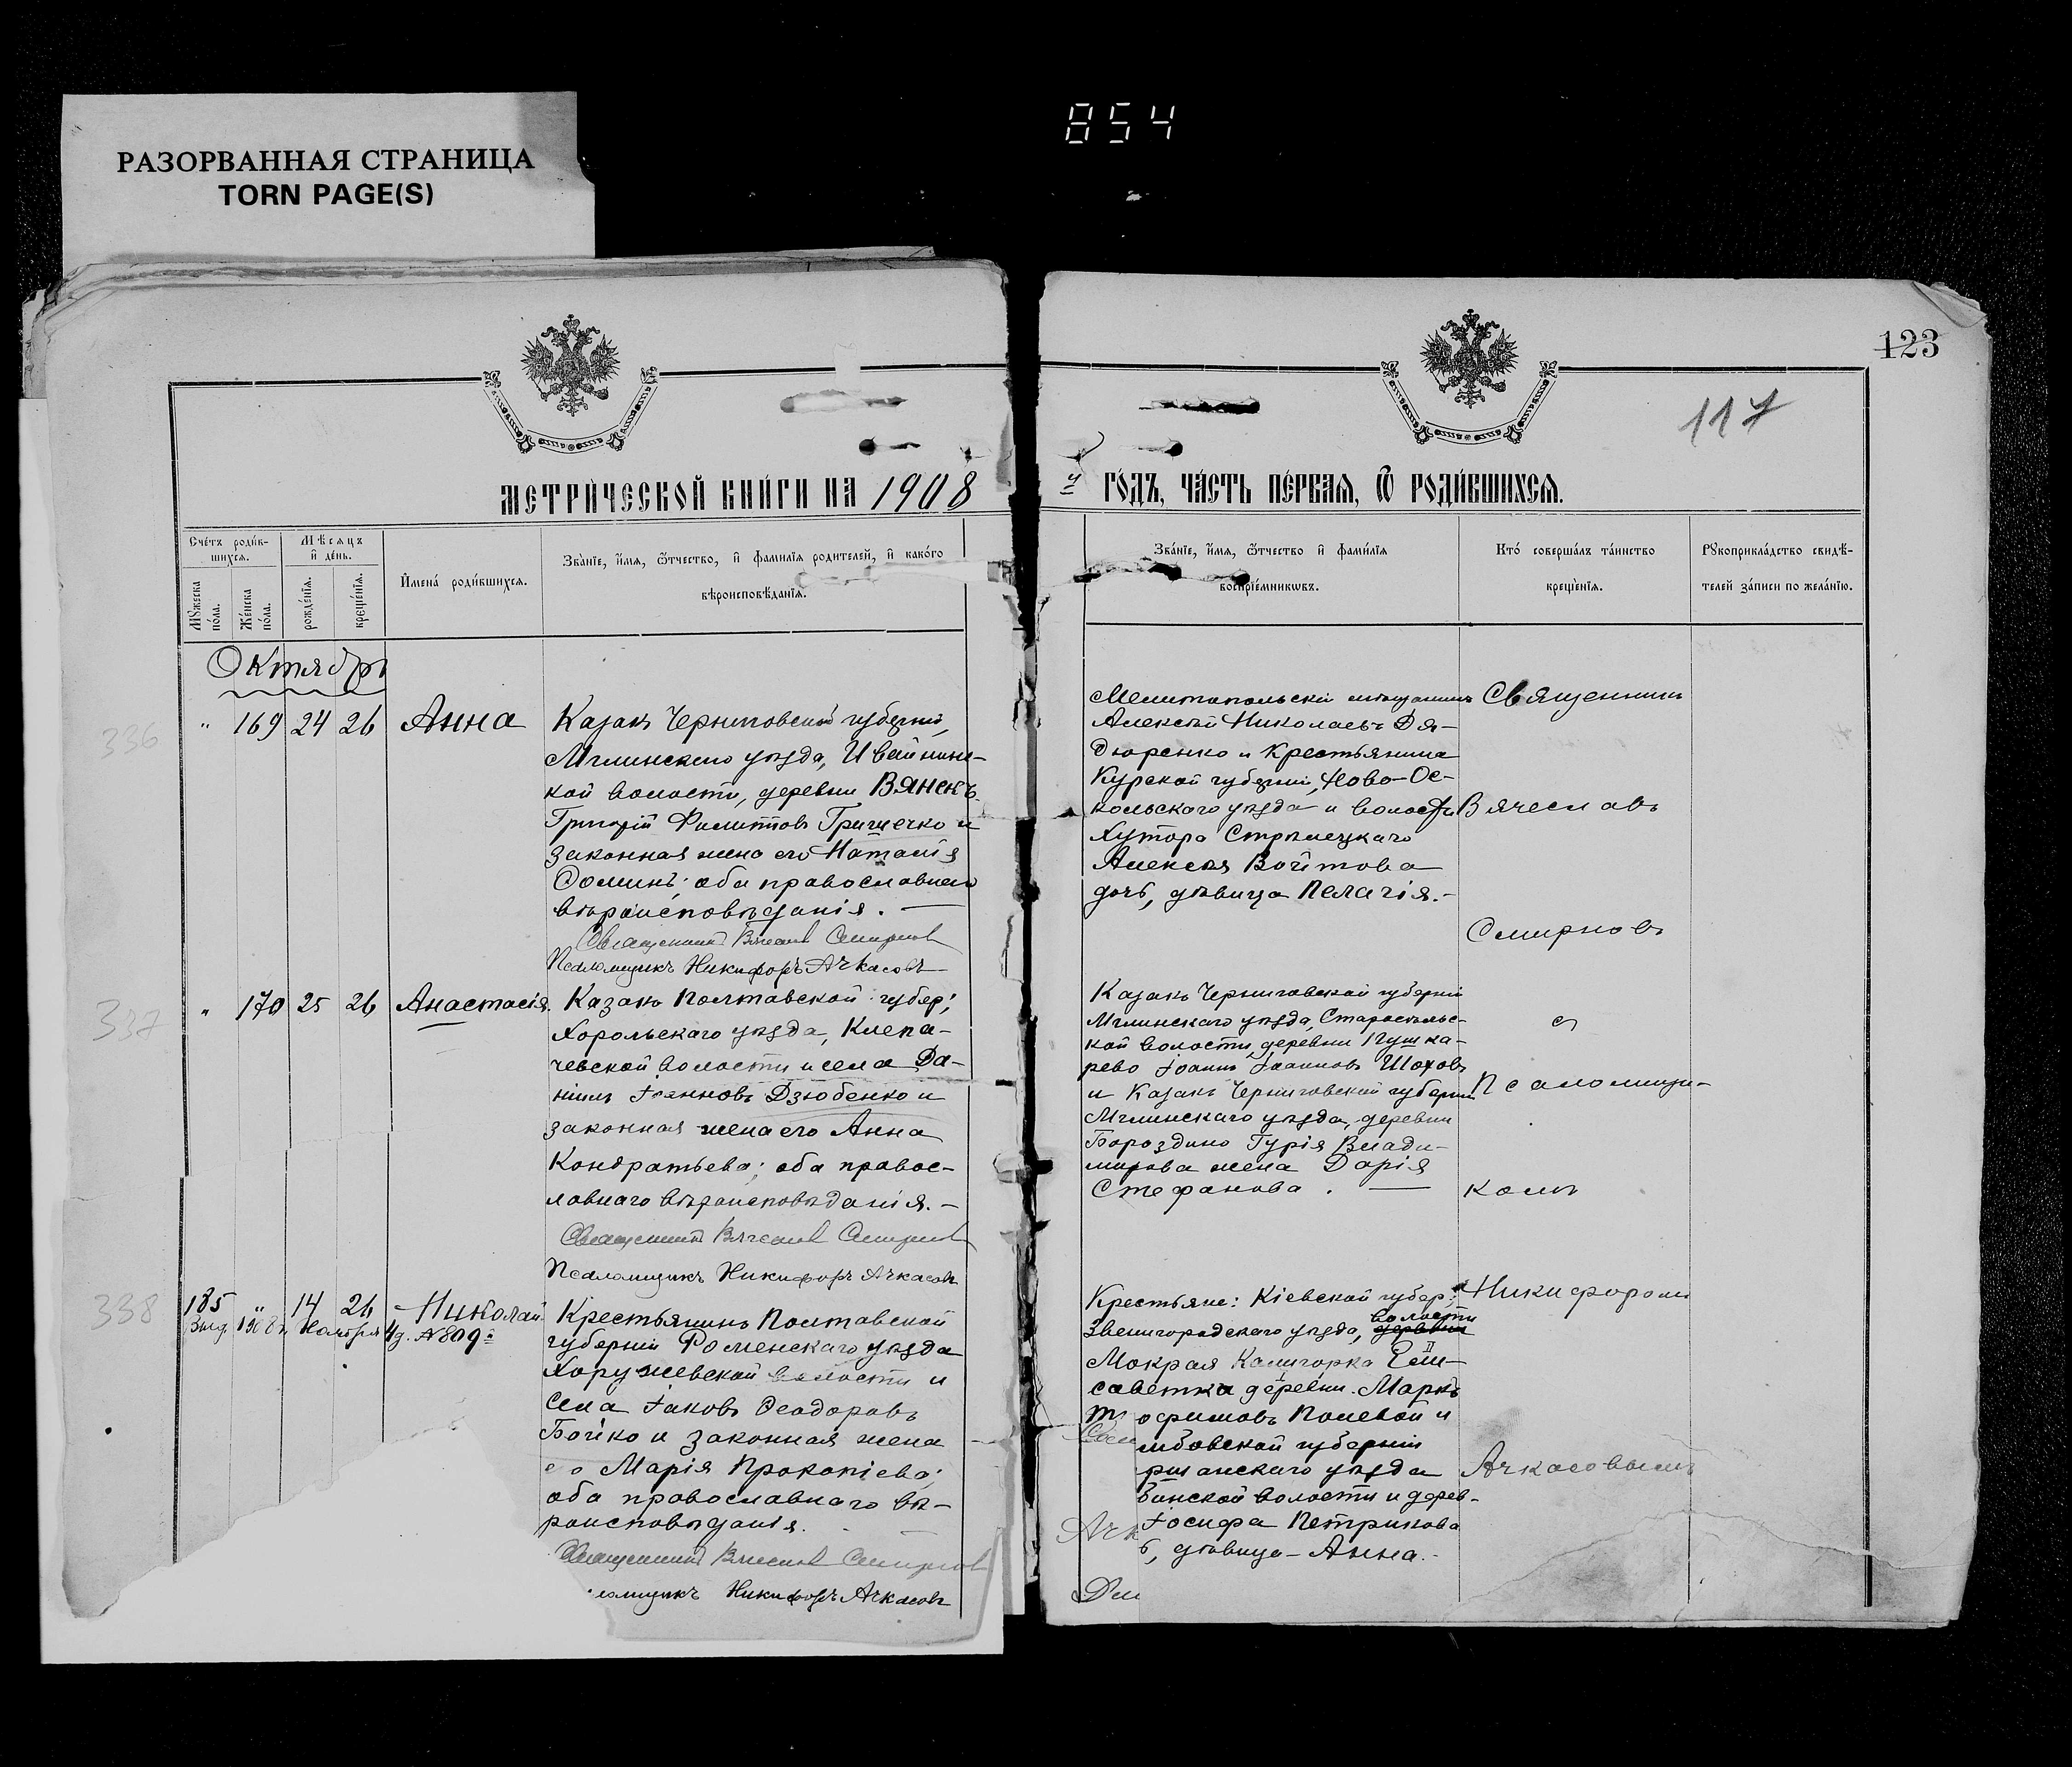 854
РАЗОРВАННАЯ СТРАНИЦА
TORN PAGE(S)
123
117
МЕТРИ́ЧЕСКОЙ КНИ́ГИ НА 1908
ГО́ДЪ, ЧА́СТЬ ПЕ́РВАЯ, Ѿ РОДИ́ВШИХСЯ.
Сче́тъ роди́вшихся.
Мѣсяцъ и де́нь.
Му́жеска по́ла.
Же́нска по́ла.
рожде́нїя.
креще́нїя.
Имена́ роди́вшихся.
Зва́нїе, и́мя, ѻ́тчество, и фами́лїя роди́телей, и како́го
вѣроисповѣ́данїя.
Зва́нїе, и́мя, ѻ́тчество и фами́лїя
воспрїе́мниковъ.
Кто́ соверша́лъ та́инство
креще́нїя.
Рукоприкла́дство свидѣ́-
телей за́писи по жела́нїю.
Октябрь
336
" 169 24 26 Анна
Казакъ Черниговской губерніи,
Мглинскаго уѣзда, Ивайтин-
кой волости, деревни Вянскъ
Григорій Филипповъ Гришечко и
законная жена его Наталія
Фомина: оба православнаго
вѣроисповѣданія. —
Священникъ Вячеславъ Смирновъ
Псаломщикъ Никифоръ Ачкасовъ
Мелитопольскій мѣщанинъ
Алексѣй Николаевъ Дя-
дюренко и Крестьянина
Курской губерніи, Ново-Ос-
кольскаго уѣзда и волости
Хутора Стрѣлецкаго
Алексѣя Войтова
дочь, дѣвица Пелагія.-
Священникъ
Вячеславъ
Смирновъ
337
" 170 25 26 Анастасія.
Казакъ Полтавской губер;
Хорольскаго уѣзда, Клепа-
чевской волости и села Да-
ніилъ Іоанновъ Дзюбенко и
законная жена его Анна
Кондратьева; оба правос-
лавнаго вѣроисповѣданія.-
Священникъ Вячеславъ Смирновъ
Псаломщикъ Никифоръ Ачкасовъ
Казакъ Черниговской губерніи
Мглинскаго уѣзда, Старосельс-
кой волости, деревни Пушка-
рево Іоаннъ Іоанновъ Шоховъ
и Казакъ Черниговской губерніи
Мглинскаго уѣзда, деревни
Бороздино Гурія Влади-
мирова жена Дарія
Стефанова. —
съ
Псаломщи-
комъ
338
185 " 14 26 Николай
Выд. 1908 г. Ноября 4д. №809
Крестьянинъ Полтавской
губерніи Роменскаго уѣзда
Хоружевской волости и
села Іаковъ Ѳеодоровъ
Бойко и законная жена
его Марія Прокопіева;
оба православнаго вѣ-
роисповѣданія.
Священникъ Вячеславъ Смирновъ
ломщикъ Никифоръ Ачкасовъ
Крестьяне: Кіевской губер;
Звенигородскаго уѣзда, волости
Мокрая Калигорка Ели-
саветка деревни. Маркъ
Трофимовъ Полевой и
мбовской губерніи
ршанскаго уѣзда
бинской волости и дерев-
Іосифа Петрикова
ь, дѣвица – Анна.-
Ачк
Никифоромъ
Ачкасовымъ